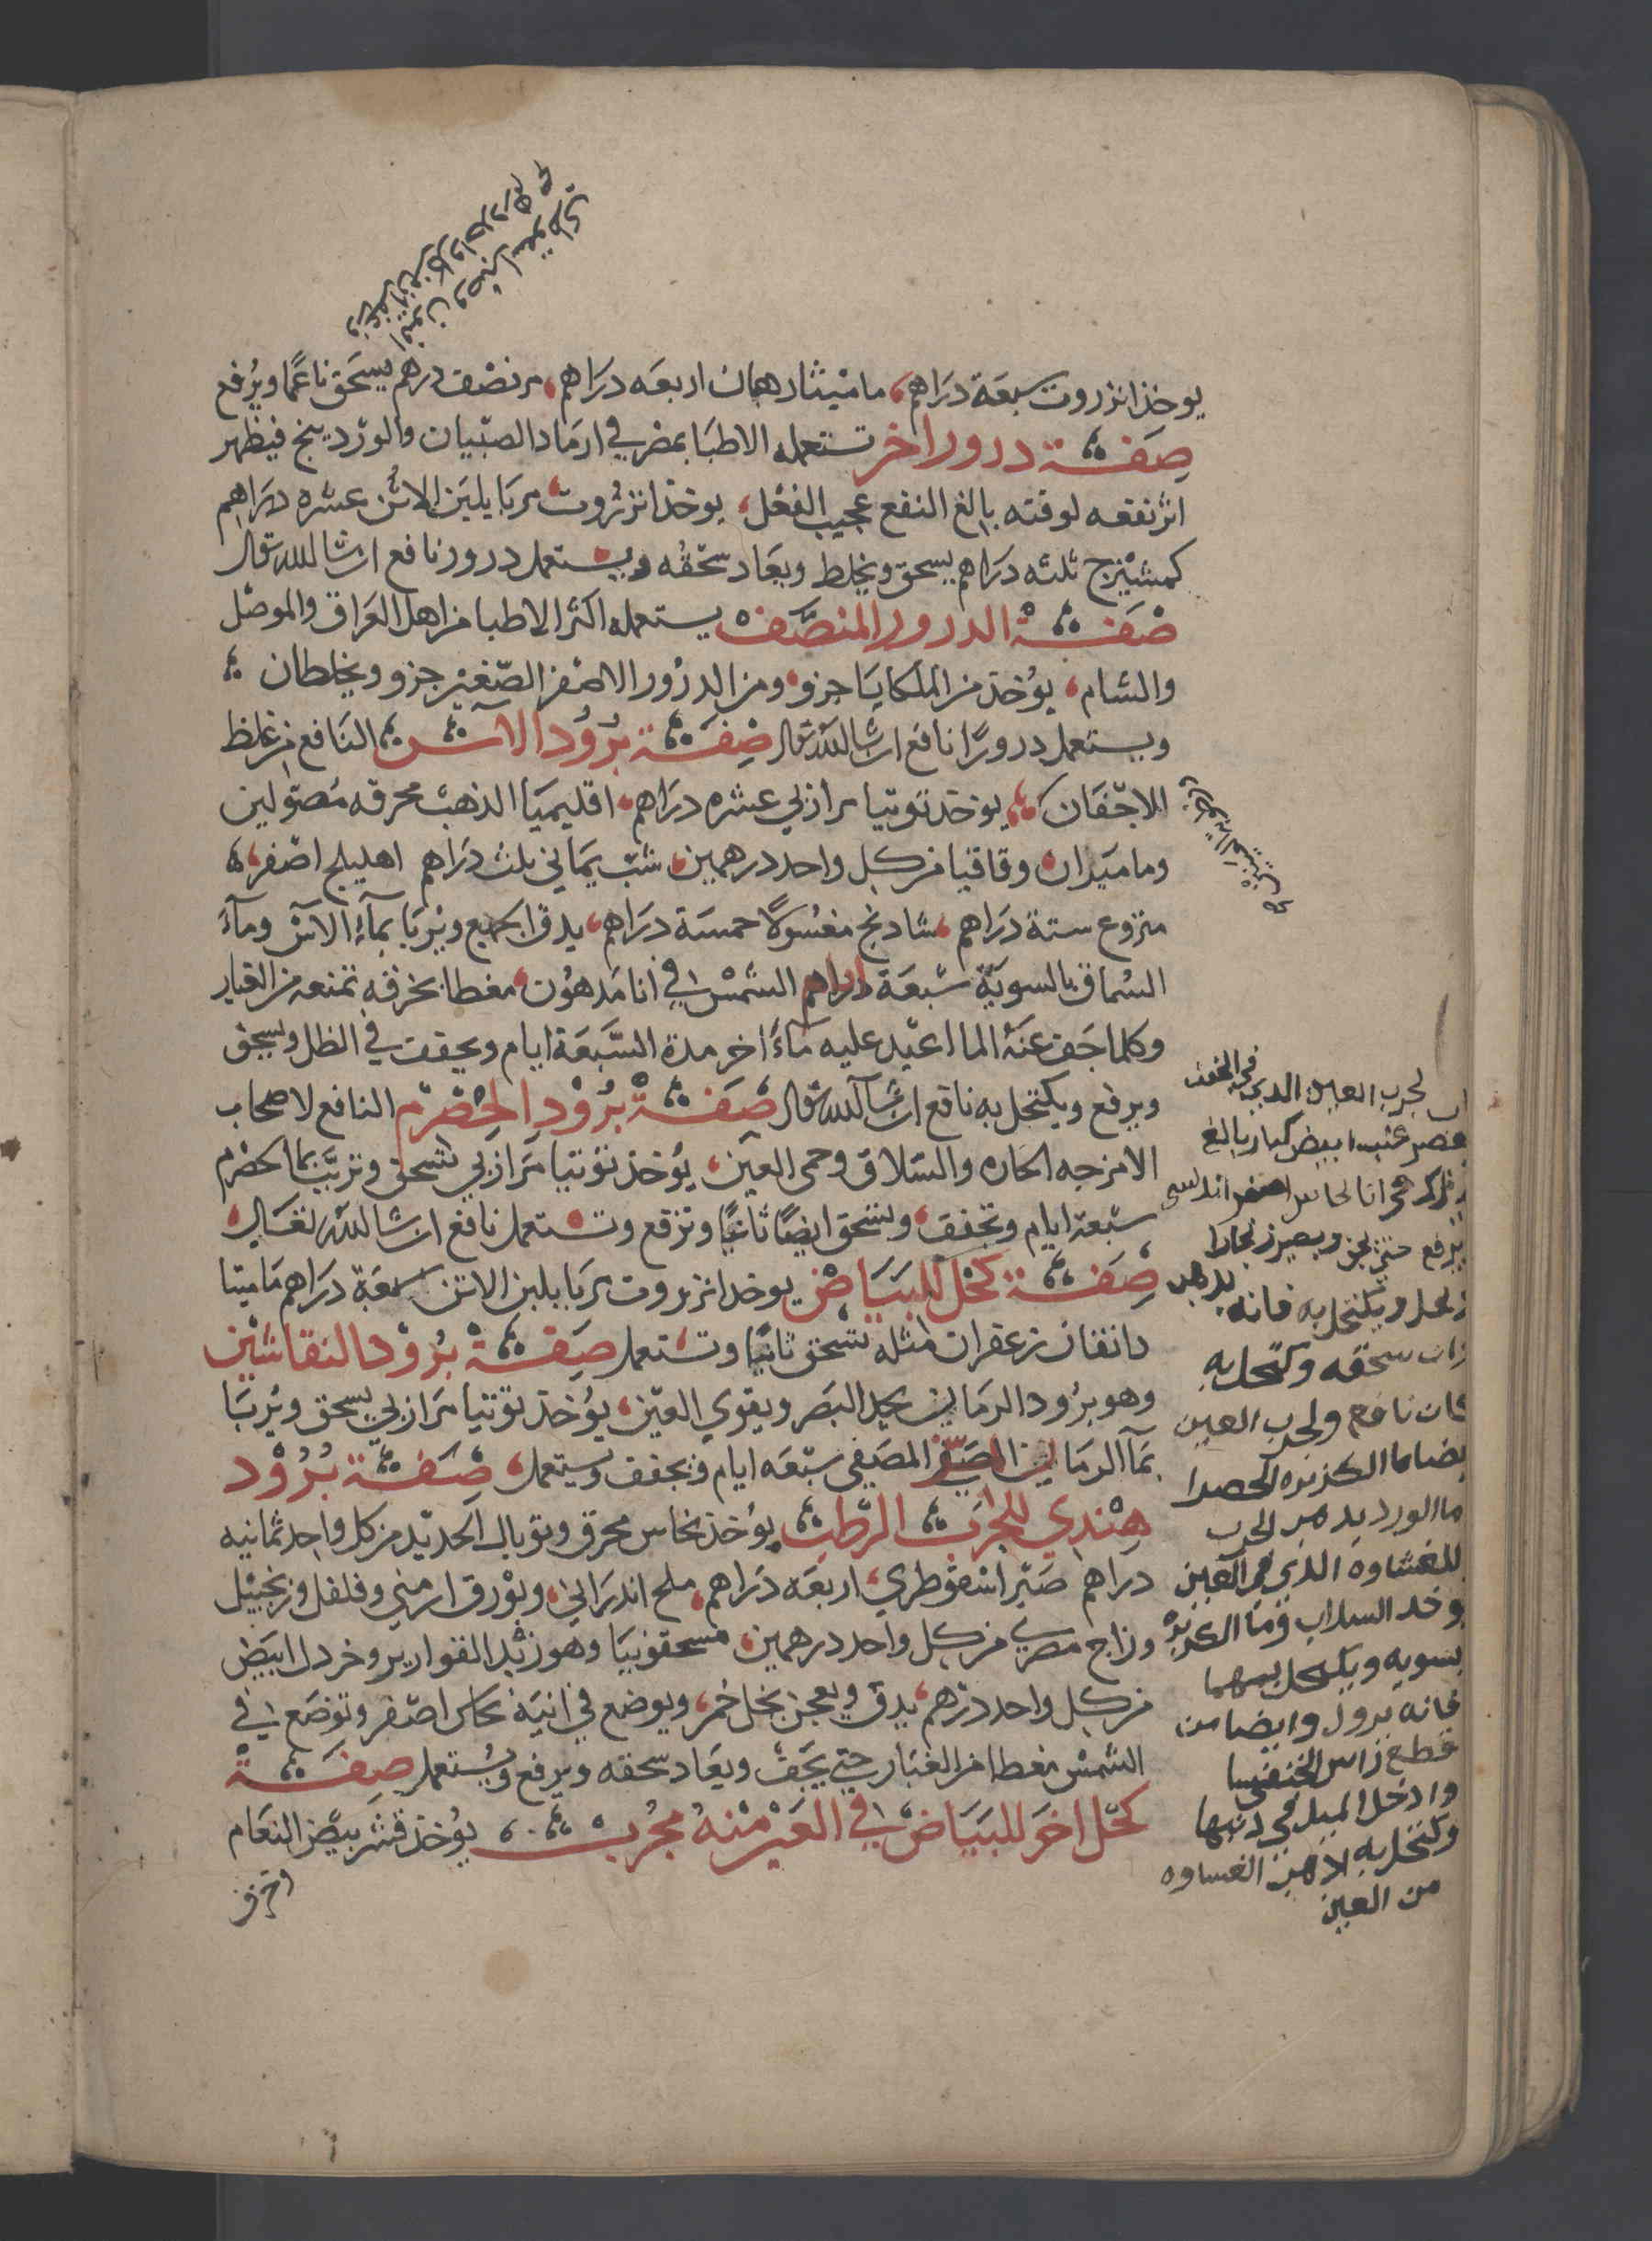 يوخذ انزروت سبعة دراهم، ماميثا درهمان اربعه دراهم، مر نصف درهم يسحق ناعما ويرفع
صفة درور اخر تستعمله الاطبا بمصر في ارماد الصبيان والوردينج فيظهر
اثر نفعه لوقته بالغ النفع عجيب الفعل، يوخذ انزروت مربا بلبن الاتن عشره دراهم
كمشيزج ثلثه دراهم يسحق ويخلط ويعاد سحقه ويستعمل درور نافع ان شا الله تعالى
صفة الدرور المنصف يستعمله اكثر الاطبا من اهل العراق والموصل
والشام، يوخذ من الملكايا جزو، ومن الدرور الاصفر الصغير جزو ويخلطان
ويستعمل درورا نافع ان شا الله تعالى صفة برود الاس النافع من غلظ
الاجفان يوخذ توتيا مرازبي عشره دراهم، اقليميا الذهب محرقه مصولين
وماميران وقاقيا من كل واحد درهمين، شب يماني ثلث دراهم اهليلج اصفر
منزوع ستة دراهم، شادنج مغسولا خمسة دراهم، يدق الجميع ويربا بمآء الآس ومآء
السماق بالسوية سبعة ايام في الشمس في انا مدهون، مغطا بخرقه تمنعه من الغبار
وكلما جف عنه الما اعيد عليه مآء اخر مدة السبعة ايام ويجفف في الظل ويسحق
ويرفع ويكتحل به نافع ان شآ الله تعالى صفة برود الحصرم النافع لاصحاب
الامزجه الحاره والسلاق وحمى العين، يوخذ توتيا مرازبي تسحق وتربب بما الحصرم
سبعة ايام وتجفف، وتسحق ايضا ثانيا وترفع وتستعمل نافع ان شا الله تعالى،
صفة كحل للبياض يوخذ انزروت مربا بلبن الاتن سبعة دراهم ماميثا
دانقان زعفران مثله تسحق ثانيا وتستعمل صفة برود النقاشين
وهو برود الرمانين يحد البصر ويقوي العين، يوخذ توتيا مرازبي يسحق ويربا
بمآ الرمانين المصفى سبعه ايام ويجفف ويستعمل، صفة برود
هندي للجرب الرطب يوخذ نحاس محرق وتوبال الحديد من كل واحد ثمانيه
دراهم صبر اسقوطري، اربعه دراهم، ملح اندراني، وبورق ارمني وفلفل وزنجبيل
وزاج مصري من كل واحد درهمين، مسحقونيا وهو زبد القوارير وخردل ابيض
من كل واحد درهم، يدق ويعجن بخل خمر، ويوضع في انية نحاس اصفر وتوضع في
الشمس مغطا من الغبار حتى يجف ويعاد سحقه ويرفع ويستعمل صفة
كحل اخر للبياض في العين منه مجرب يوخذ قشر بيض النعام
لجرب العين الذي في الجفن
عصر عنب ابيض كبار بالغ
في انا نحاس اصفر اندلسي
يرفع حتى
ويكتحل به فانه يدهب
سحقه وكتحل به
كان نافع ولجرب العين
ايضا ما الكزبره الخضرا
ما الورد يدهب الجرب
للغشاوه الذي في العين
يوخد السداب وما الكزبره
بسويه ويكتحل بهما
فانه يزول وايضا من
قطع راس الخنفسا
وادخل الميل في دنبها
وكتحل به لادهب الغساوه
من العين